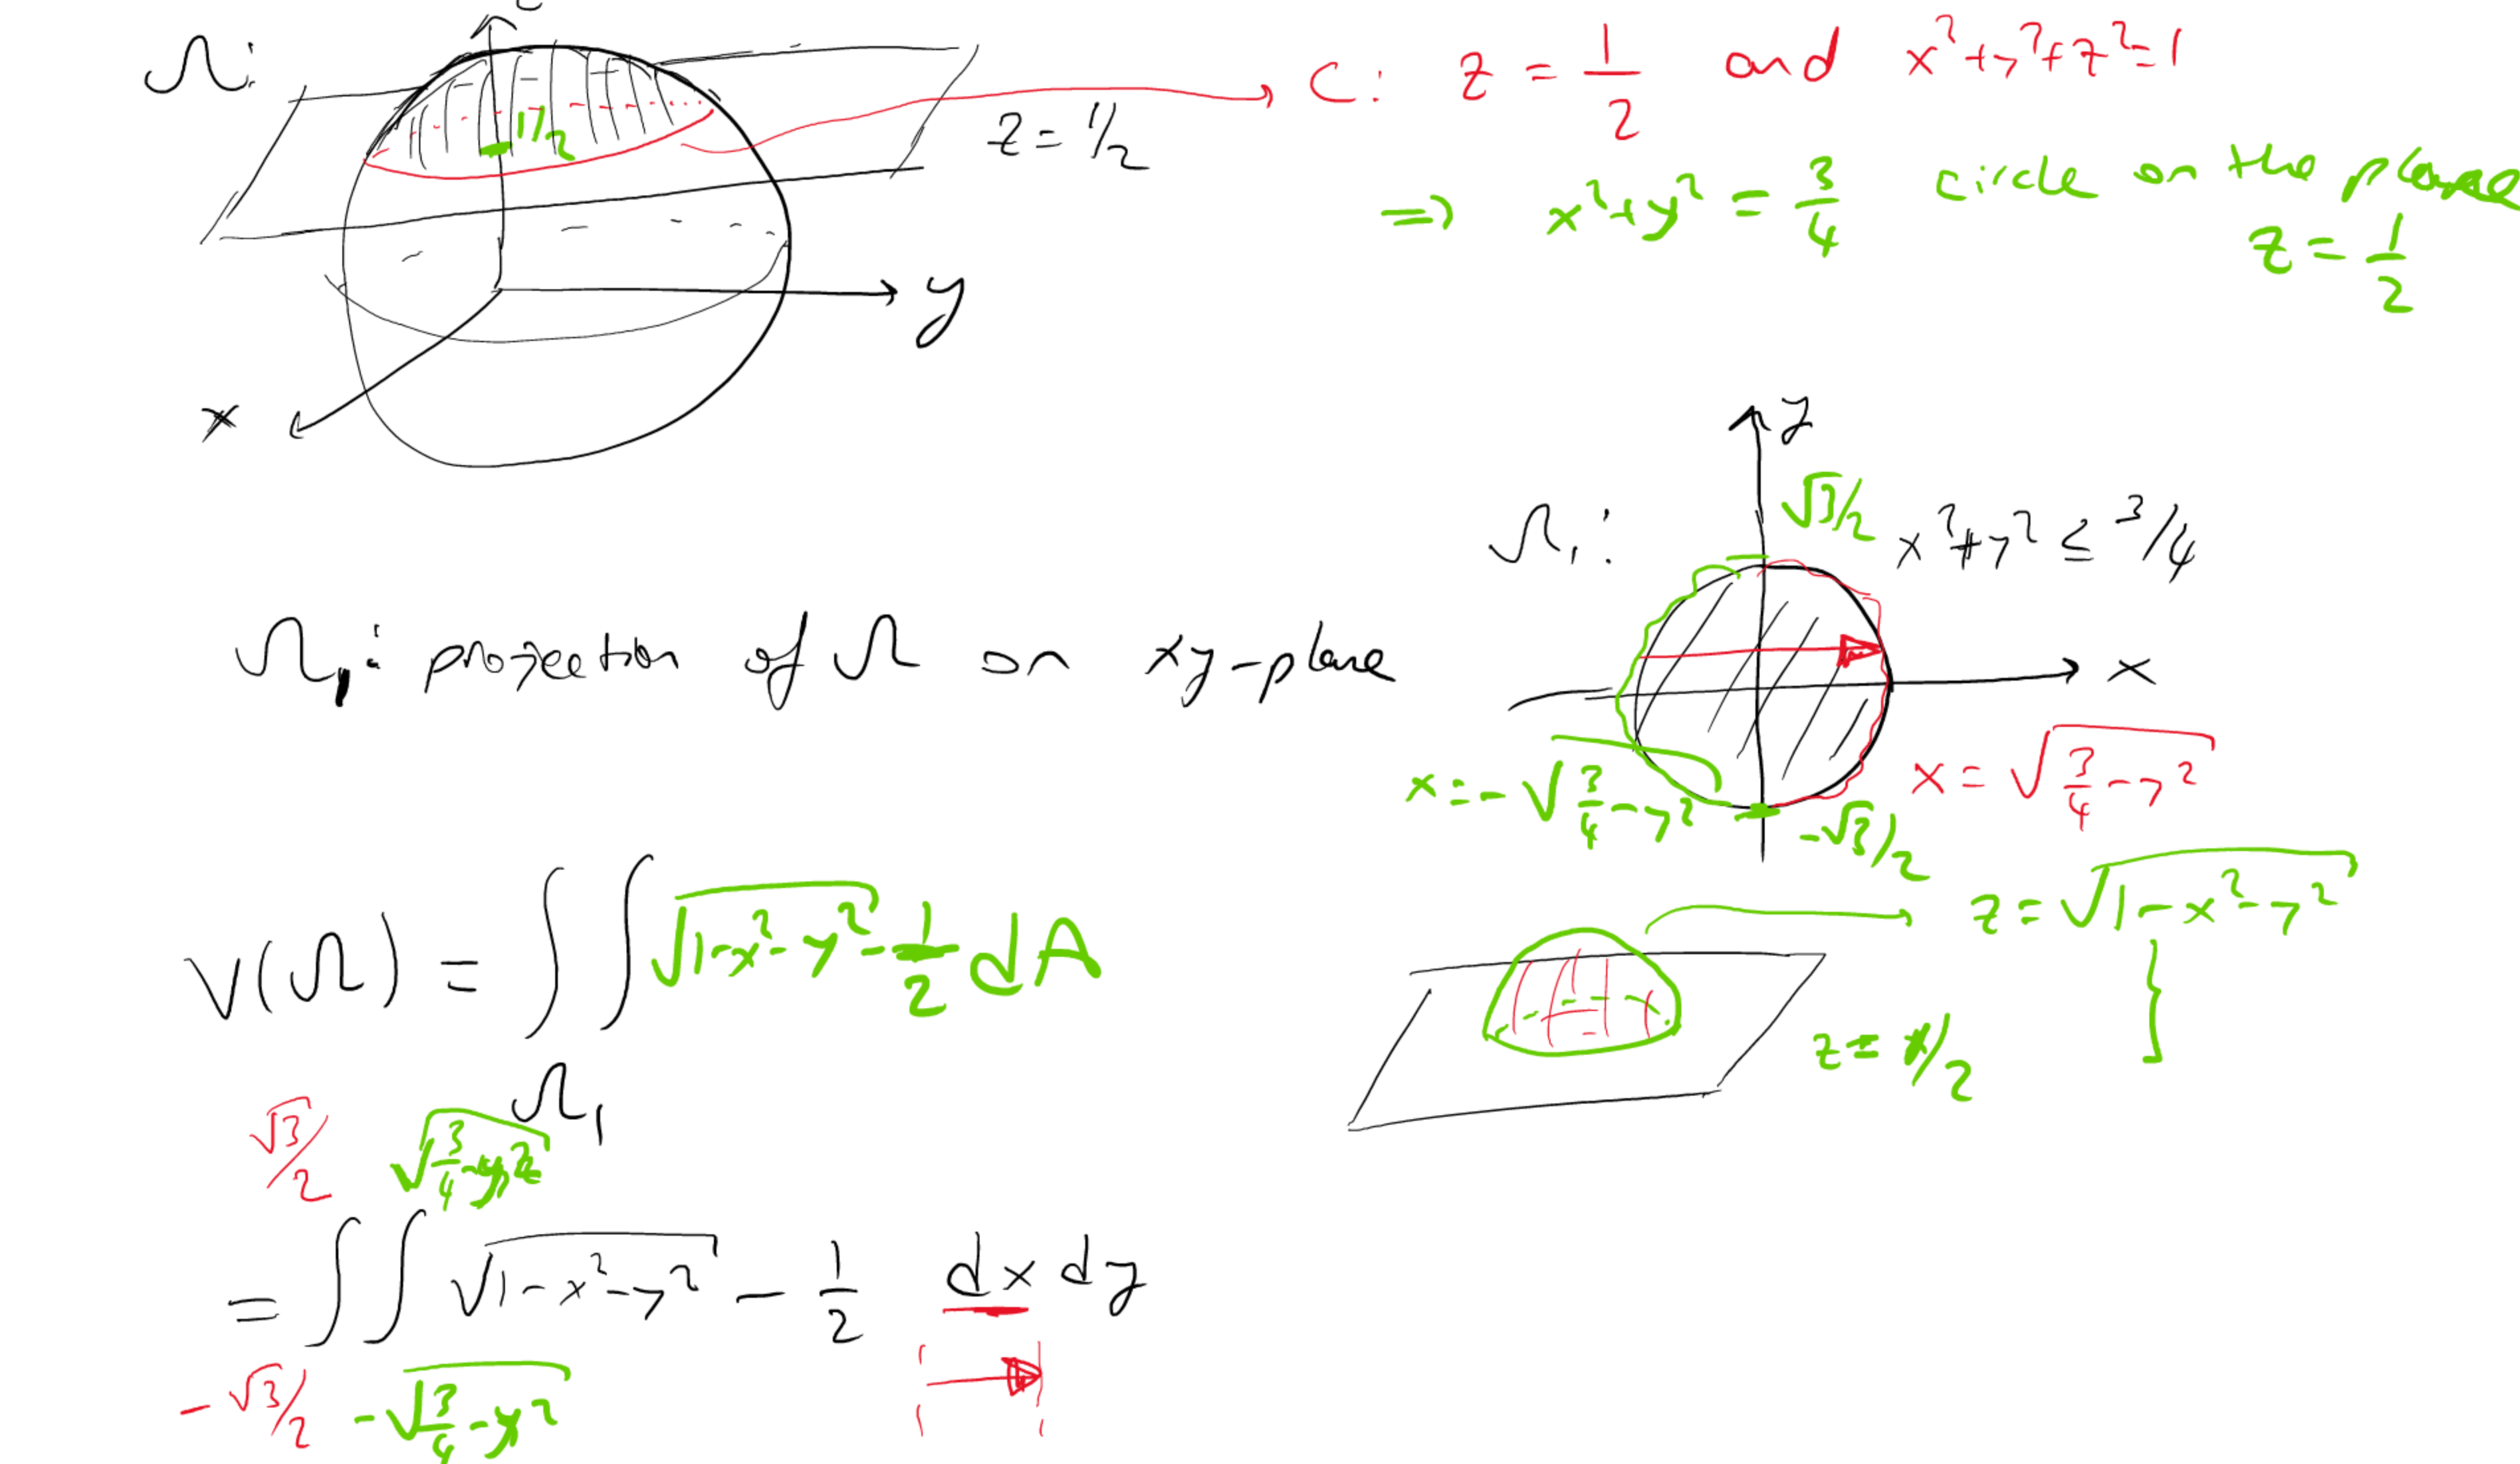 Ω:
z
1/2
z = 1/2
y
x
C: z = 1/2 and x²+y²+z²=1
=> x²+y² = 3/4 circle on the plane
z = 1/2
y
Ω₁: √3/2 x²+y² ≤ 3/4
x
x = -√(3/4 - y²) -√3/2 x = √(3/4 - y²)
Ω₁: projection of Ω on xy-plane
V(Ω) = ∫∫ √(1-x²-y²) - 1/2 dA
Ω₁
z = √(1-x²-y²)
z = 1/2
√3/2 √(3/4 - y²)
= ∫∫ √(1-x²-y²) - 1/2 dx dy
-√3/2 -√(3/4 - y²)